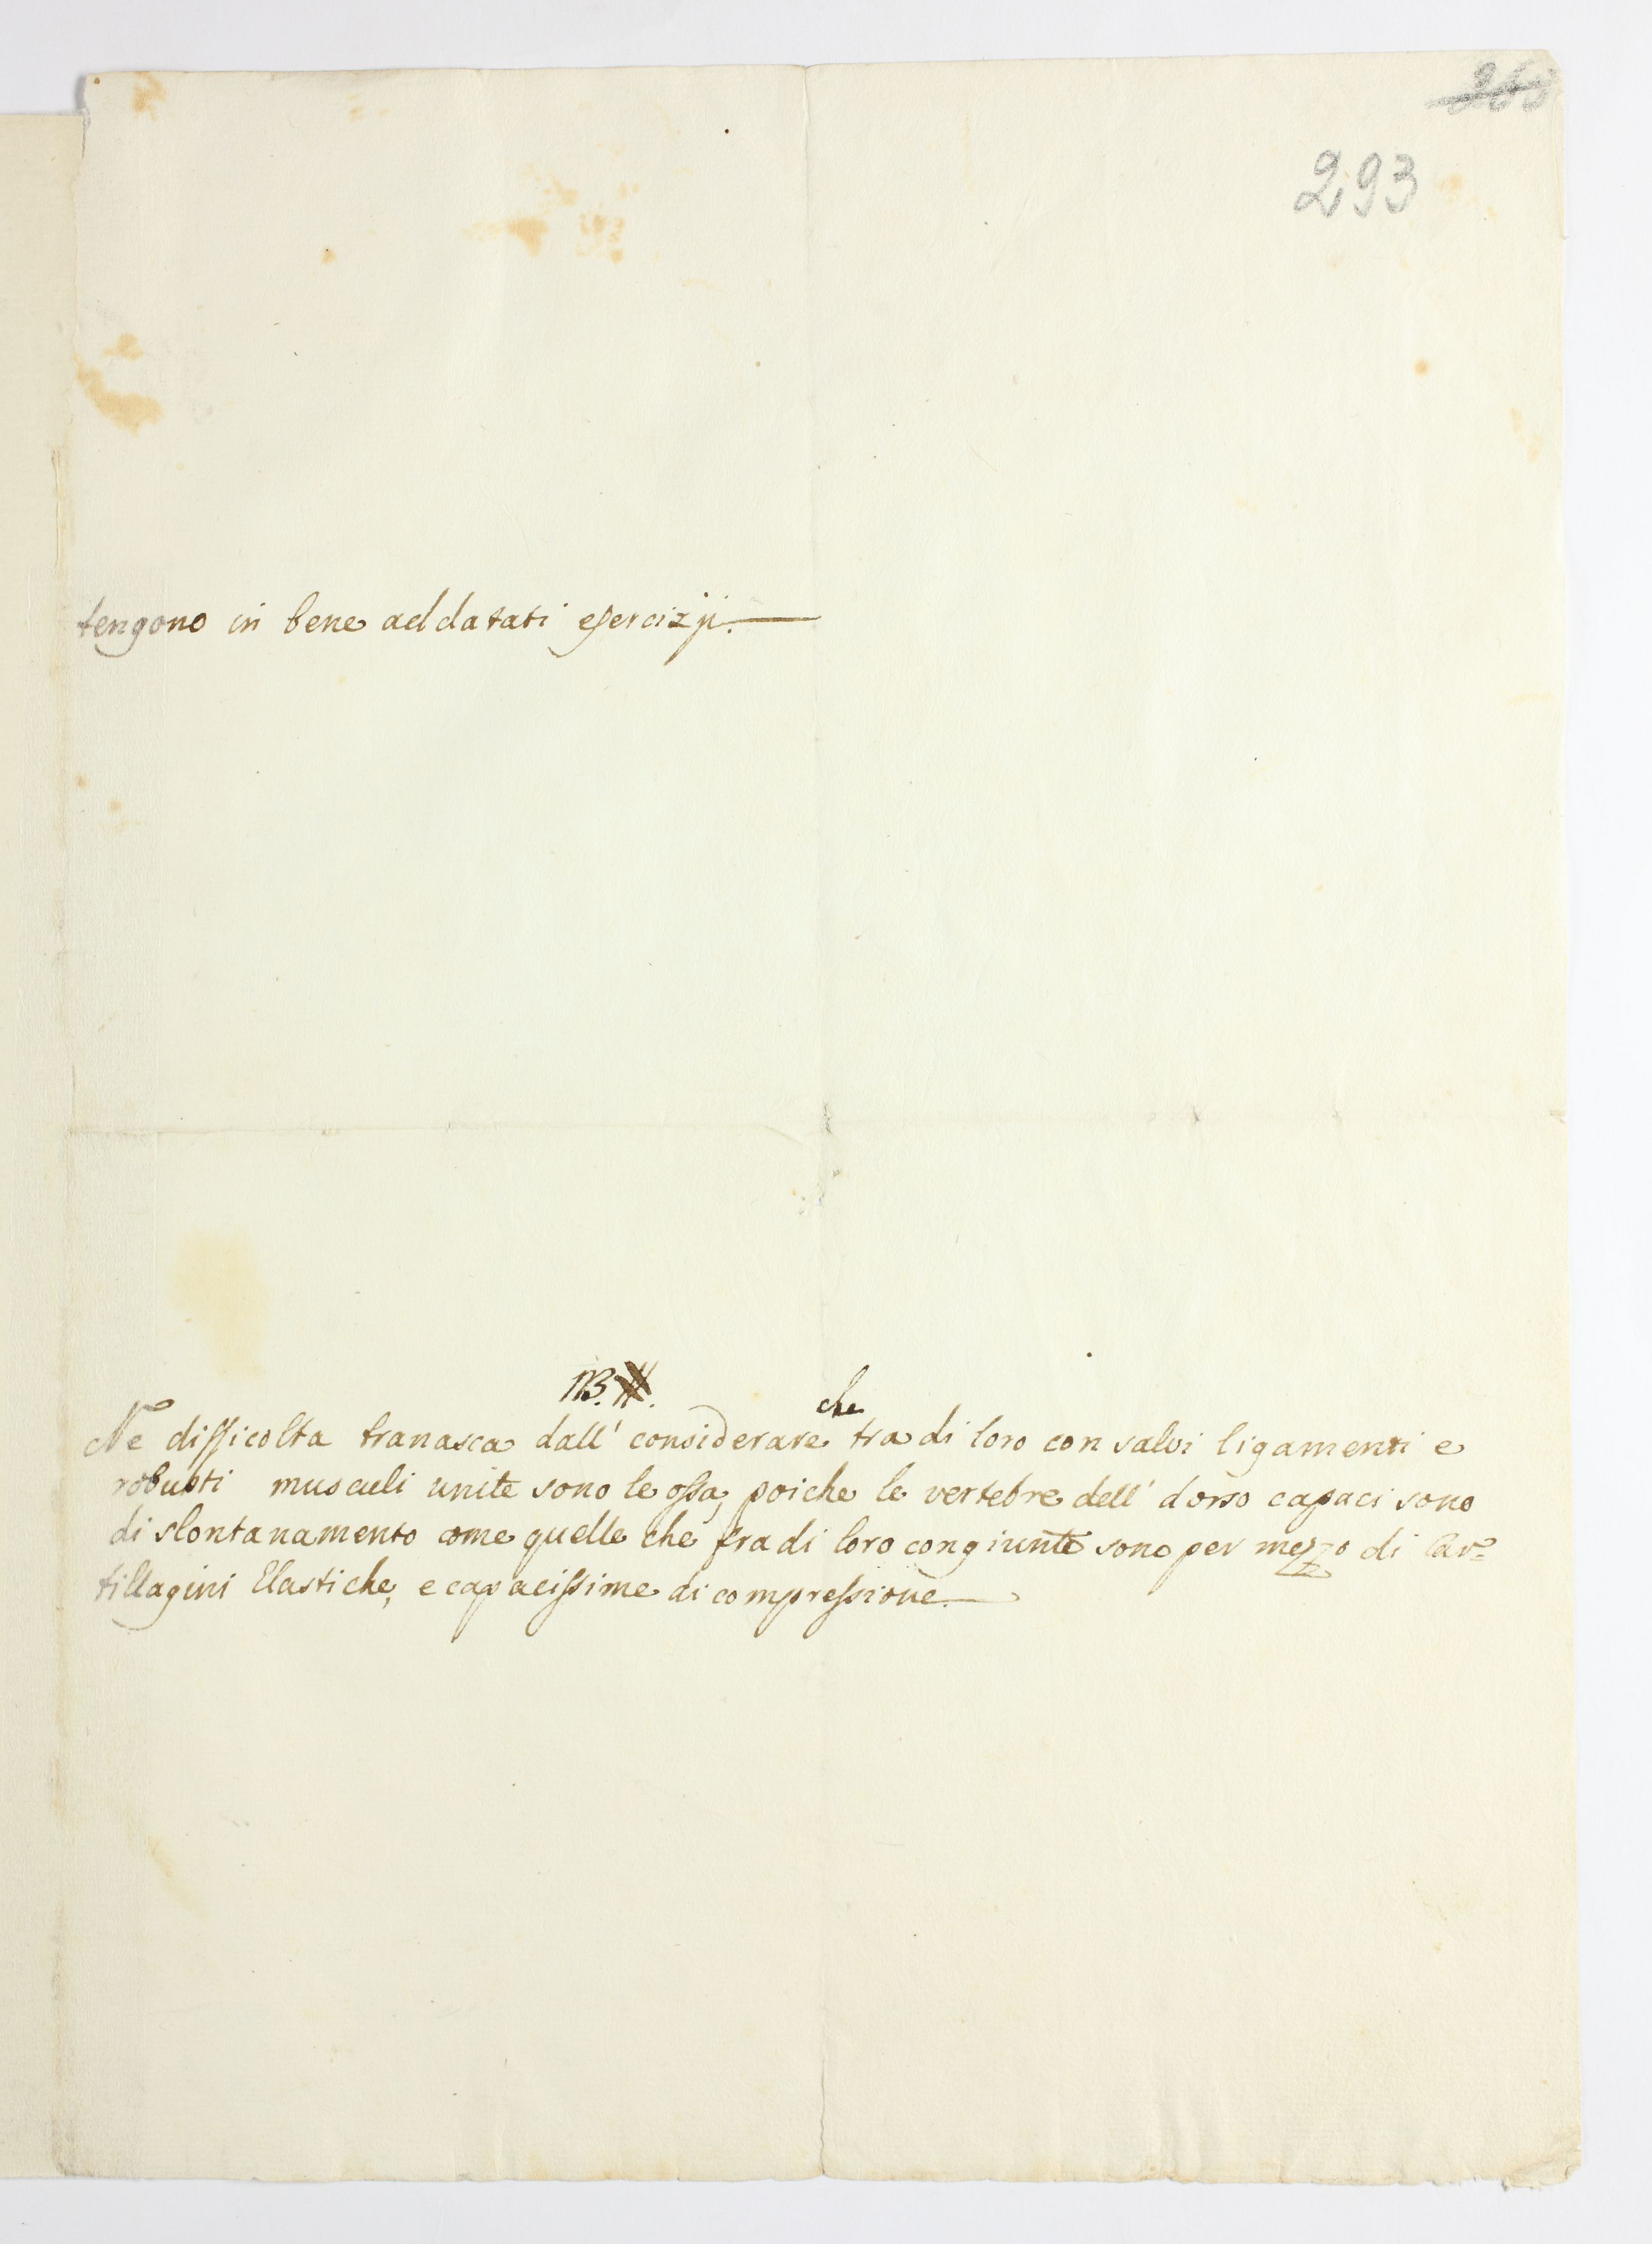 268
293
tengono in bene addatati esercizji.
NB.
che
Ne difficolta tranasca dall' considerare tra di loro con salvi ligamenti e
robusti musculi unite sono le ossa, poiche le vertebre dell' dorso capaci sono
di slontanamento come quelle che fra di loro congiunte sono per mezzo di Car=
tillagini Elastiche, e capacissime di compressione.